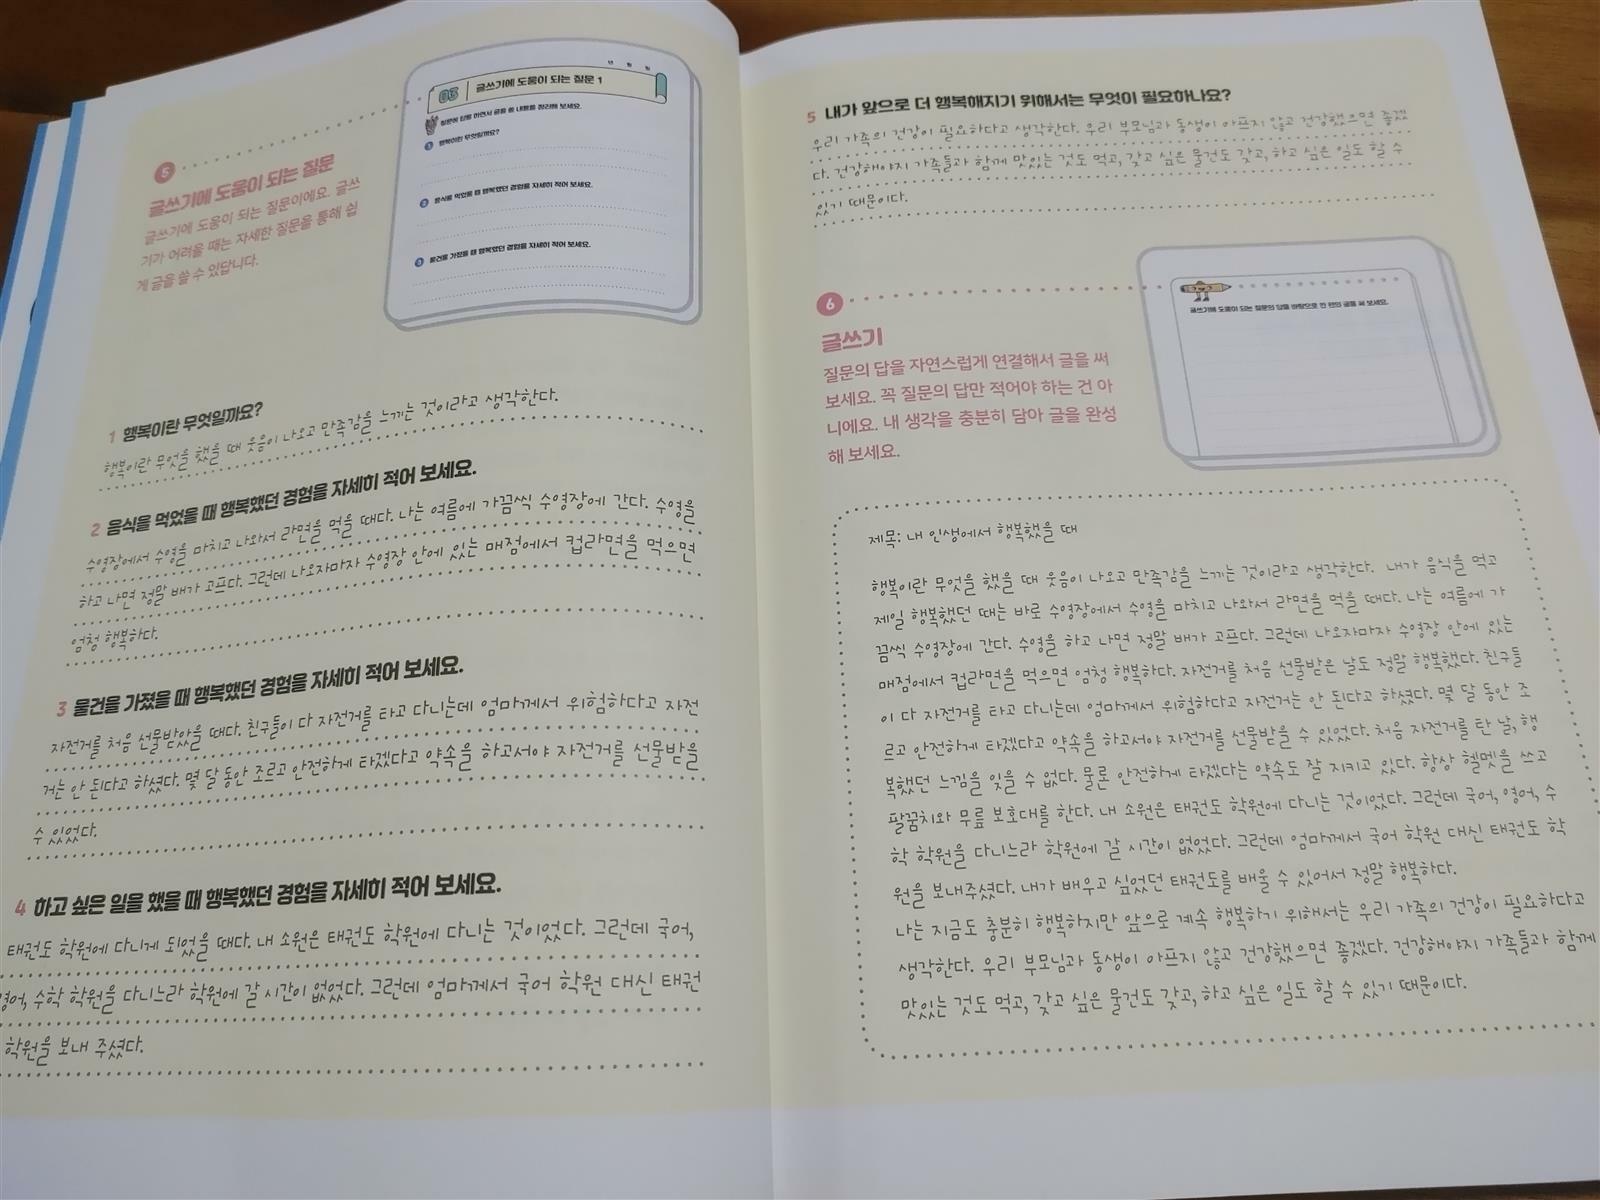 5
글쓰기에 도움이 되는 질문
글쓰기에 도움이 되는 질문이에요. 글쓰
기가 어려울 때는 자세한 질문을 통해 쉽
게 글을 쓸 수 있답니다.
년 월 일
03 글쓰기에 도움이 되는 질문 1
질문에 답을 하면서 글을 쓸 내용을 정리해 보세요.
1 행복이란 무엇일까요?
2 음식을 먹었을 때 행복했던 경험을 자세히 적어 보세요.
3 물건을 가졌을 때 행복했던 경험을 자세히 적어 보세요.
1 행복이란 무엇일까요?
행복이란 무엇을 했을 때 웃음이 나오고 만족감을 느끼는 것이라고 생각한다.
2 음식을 먹었을 때 행복했던 경험을 자세히 적어 보세요.
수영장에서 수영을 마치고 나와서 라면을 먹을 때다. 나는 여름에 가끔씩 수영장에 간다. 수영을
하고 나면 정말 배가 고프다. 그런데 나오자마자 수영장 안에 있는 매점에서 컵라면을 먹으면
엄청 행복하다.
3 물건을 가졌을 때 행복했던 경험을 자세히 적어 보세요.
자전거를 처음 선물받았을 때다. 친구들이 다 자전거를 타고 다니는데 엄마께서 위험하다고 자전
거는 안 된다고 하셨다. 몇 달 동안 조르고 안전하게 타겠다고 약속을 하고서야 자전거를 선물받을
수 있었다.
4 하고 싶은 일을 했을 때 행복했던 경험을 자세히 적어 보세요.
태권도 학원에 다니게 되었을 때다. 내 소원은 태권도 학원에 다니는 것이었다. 그런데 국어,
영어, 수학 학원을 다니느라 학원에 갈 시간이 없었다. 그런데 엄마께서 국어 학원 대신 태권
학원을 보내 주셨다.
5 내가 앞으로 더 행복해지기 위해서는 무엇이 필요하나요?
우리 가족의 건강이 필요하다고 생각한다. 우리 부모님과 동생이 아프지 않고 건강했으면 좋겠
다. 건강해야지 가족들과 함께 맛있는 것도 먹고, 갖고 싶은 물건도 갖고, 하고 싶은 일도 할 수
있기 때문이다.
6
글쓰기
질문의 답을 자연스럽게 연결해서 글을 써
보세요. 꼭 질문의 답만 적어야 하는 건 아
니에요. 내 생각을 충분히 담아 글을 완성
해 보세요.
글쓰기에 도움이 되는 질문의 답을 바탕으로 한 편의 글을 써 보세요.
제목: 내 인생에서 행복했을 때
행복이란 무엇을 했을 때 웃음이 나오고 만족감을 느끼는 것이라고 생각한다. 내가 음식을 먹고
제일 행복했던 때는 바로 수영장에서 수영을 마치고 나와서 라면을 먹을 때다. 나는 여름에 가
끔씩 수영장에 간다. 수영을 하고 나면 정말 배가 고프다. 그런데 나오자마자 수영장 안에 있는
매점에서 컵라면을 먹으면 엄청 행복하다. 자전거를 처음 선물받은 날도 정말 행복했다. 친구들
이 다 자전거를 타고 다니는데 엄마께서 위험하다고 자전거는 안 된다고 하셨다. 몇 달 동안 조
르고 안전하게 타겠다고 약속을 하고서야 자전거를 선물받을 수 있었다. 처음 자전거를 탄 날, 행
복했던 느낌을 잊을 수 없다. 물론 안전하게 타겠다는 약속도 잘 지키고 있다. 항상 헬멧을 쓰고
팔꿈치와 무릎 보호대를 한다. 내 소원은 태권도 학원에 다니는 것이었다. 그런데 국어, 영어, 수
학 학원을 다니느라 학원에 갈 시간이 없었다. 그런데 엄마께서 국어 학원 대신 태권도 학
원을 보내주셨다. 내가 배우고 싶었던 태권도를 배울 수 있어서 정말 행복하다.
나는 지금도 충분히 행복하지만 앞으로 계속 행복하기 위해서는 우리 가족의 건강이 필요하다고
생각한다. 우리 부모님과 동생이 아프지 않고 건강했으면 좋겠다. 건강해야지 가족들과 함께
맛있는 것도 먹고, 갖고 싶은 물건도 갖고, 하고 싶은 일도 할 수 있기 때문이다.